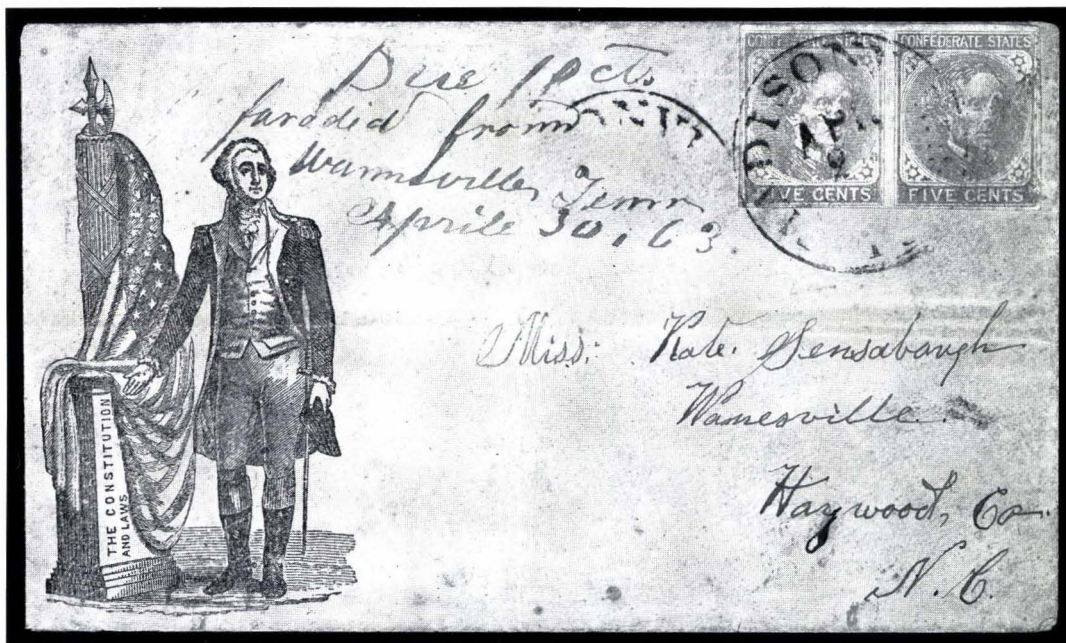 Due 10 cts.
forodid from
Wannesville, Tenn
Aprile 30, 63.
CONFEDERATE STATES
FIVE CENTS
CONFEDERATE STATES
FIVE CENTS
DISON
AP
Miss: Kate. Sensabaugh
Wanesville.
Haywood, Co.
N. C.
THE CONSTITUTION
AND LAWS